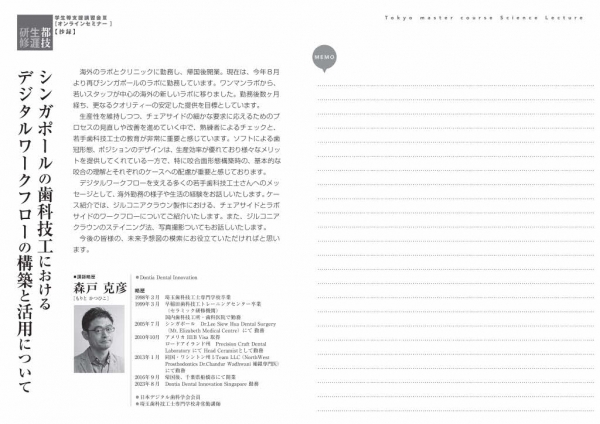 都技
生涯
研修
学生等支援講習会Ⅱ
[オンラインセミナー]
【抄録】
シンガポールの歯科技工における
デジタルワークフローの構築と活用について
海外のラボとクリニックに勤務し、帰国後開業。現在は、今年８月
より再びシンガポールのラボに勤務しています。ワンマンラボから、
若いスタッフが中心の海外の新しいラボに移りました。勤務後数ヶ月
経ち、更なるクオリティーの安定した提供を目標としています。
生産性を維持しつつ、チェアサイドの細かな要求に応えるためのプ
ロセスの見直しや改善を進めていく中で、熟練者によるチェックと、
若手歯科技工士の教育が非常に重要と感じています。ソフトによる歯
冠形態、ポジションのデザインは、生産効率が優れており様々なメリッ
トを提供してくれている一方で、特に咬合面形態構築時の、基本的な
咬合の理解とそれぞれのケースへの配慮が重要と感じております。
デジタルワークフローを支える多くの若手歯科技工士さんへのメッ
セージとして、海外勤務の様子や生活の経験をお話しいたします。ケー
ス紹介では、ジルコニアクラウン製作における、チェアサイドとラボ
サイドのワークフローについてご紹介いたします。また、ジルコニア
クラウンのステイニング法、写真撮影ついてもお話いたします。
今後の皆様の、未来予想図の模索にお役立ていただければと思い
ます。
■講師略歴
森戸 克彦
[もりと かつひこ]
※Dentia Dental Innovation
略歴
1998年３月 埼玉歯科技工士専門学校卒業
1999年３月 早稲田歯科技工トレーニングセンター卒業
(セラミック研修機関)
国内歯科技工所・歯科医院で勤務
2005年７月 シンガポール Dr.Lee Siew Hoa Dental Surgery
(Mt. Elizabeth Medical Centre) にて勤務
2010年10月 アメリカ H1B Visa 取得
ロードアイランド州 Precision Craft Dental
Laboratory にて Head Ceramistとして勤務
2013年１月 同国・ワシントン州 I-Team LLC (NorthWest
Prosthodontics Dr.Chandur Wadhwani 補綴専門医)
にて勤務
2016年９月 帰国後、千葉県船橋市にて開業
2023年８月 Dentia Dental Innovation Singapore 勤務
※日本デジタル歯科学会会員
※埼玉歯科技工士専門学校非常勤講師
Tokyo master course Science Lecture
MEMO